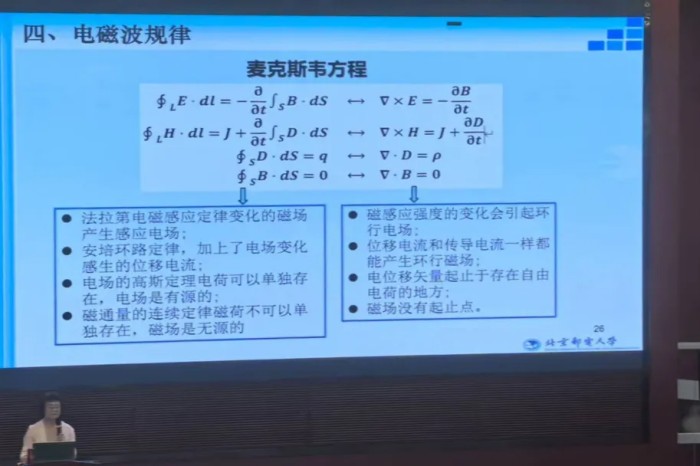 四、电磁波规律
麦克斯韦方程
∮_L E · dl = − ∂/∂t ∫_S B · dS ↔ ∇ × E = − ∂B/∂t
∮_L H · dl = J + ∂/∂t ∫_S D · dS ↔ ∇ × H = J + ∂D/∂t
∮_S D · dS = q ↔ ∇ · D = ρ
∮_S B · dS = 0 ↔ ∇ · B = 0
● 法拉第电磁感应定律变化的磁场
产生感应电场;
● 安培环路定律，加上了电场变化
感生的位移电流;
● 电场的高斯定理电荷可以单独存
在，电场是有源的;
● 磁通量的连续定律磁荷不可以单
独存在，磁场是无源的
● 磁感应强度的变化会引起环
行电场;
● 位移电流和传导电流一样都
能产生环行磁场;
● 电位移矢量起止于存在自由
电荷的地方;
● 磁场没有起止点。
26
北京邮电大学